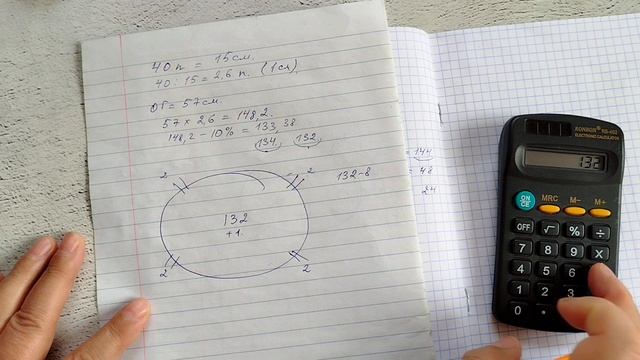 40 п = 15 см.
40 : 15 = 2,6 п. (1см).
ОГ = 57 см.
57 × 2,6 = 148,2.
148,2 – 10% = 133,38
134, 132,
2
2
132-8
132
+1
2
2
= 144
= 48
24
RONBON
ELECTRONIC CALCULATOR
132
ON
CE
MRC
M-
M+
OFF
√
%
÷
7
8
9
X
4
5
6
1
2
3
0